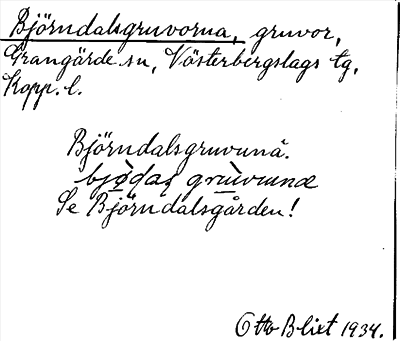 Björndalsgruvorna, gruvor,
Grangärde sn, Västerbergslags tg,
Kopp. l.
Björndalsgruvunå.
Se Björndalsgården!
Otto Blixt 1934.